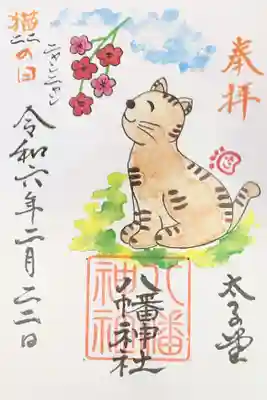 奉拝
太子堂
八幡神社
八幡
神社
猫の日
ニャンニャンニャン
令和六年二月二二日